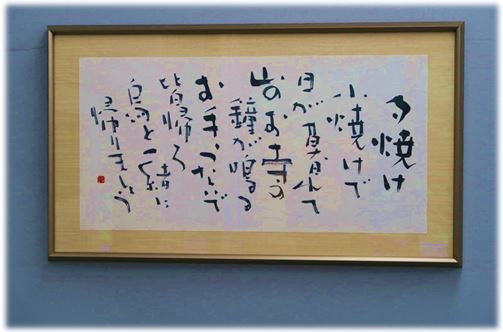 夕焼け
小焼けで
日が暮れて
山のお寺の
鐘が鳴る
お手つないで
皆帰ろ
烏と一緒に
帰りましょう